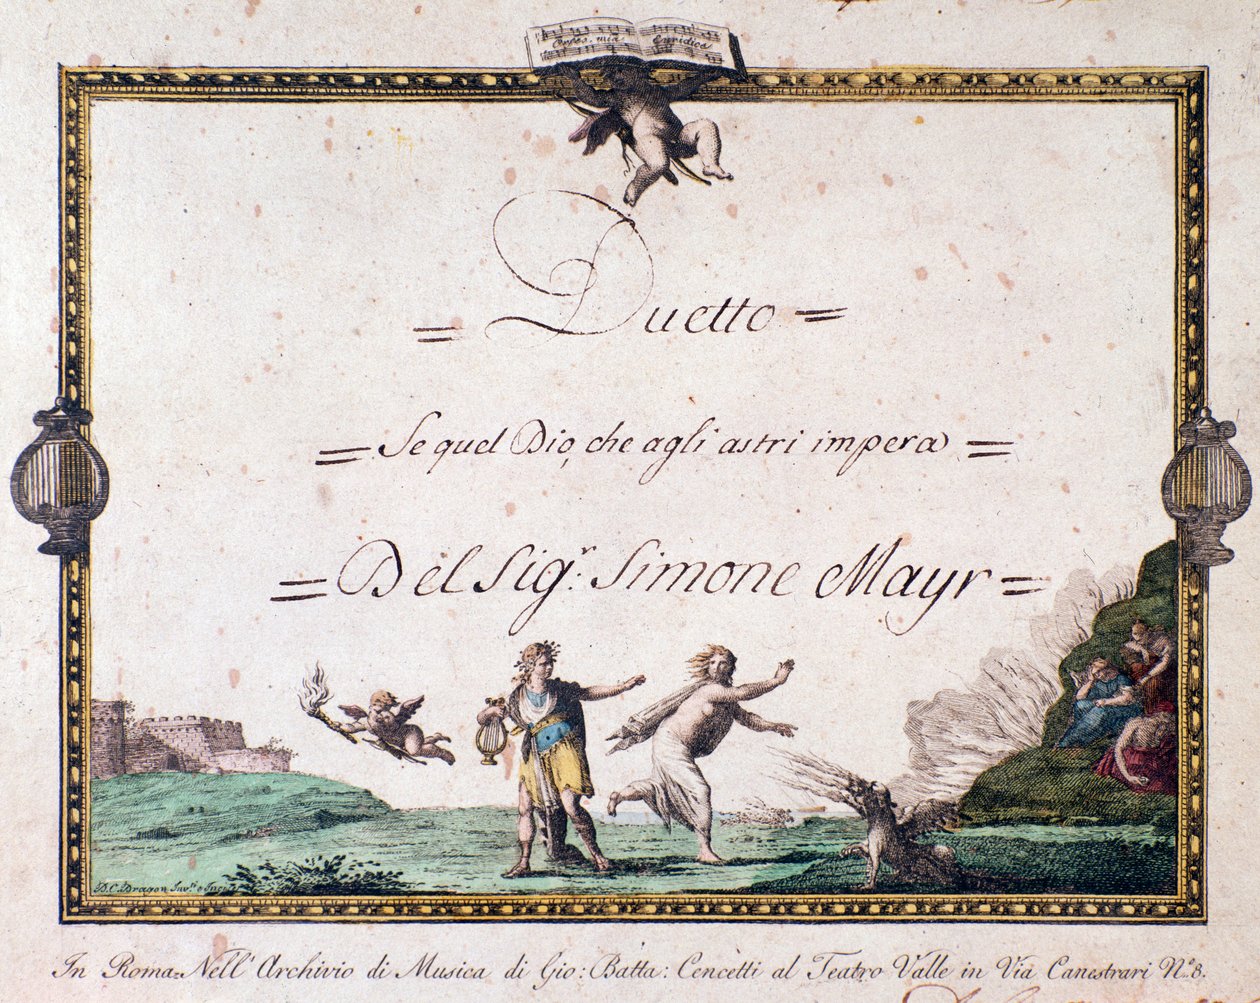 Orfeo, mia Euridice
= Duetto =
= Se quel Dio, che agli astri impera =
= Del Sig.r Simone Mayr =
D. C. Dragon Inv.
In Roma. Nell' Archivio di Musica di Gio: Batta: Cencetti al Teatro Valle in Via Canestrari N.o 8.